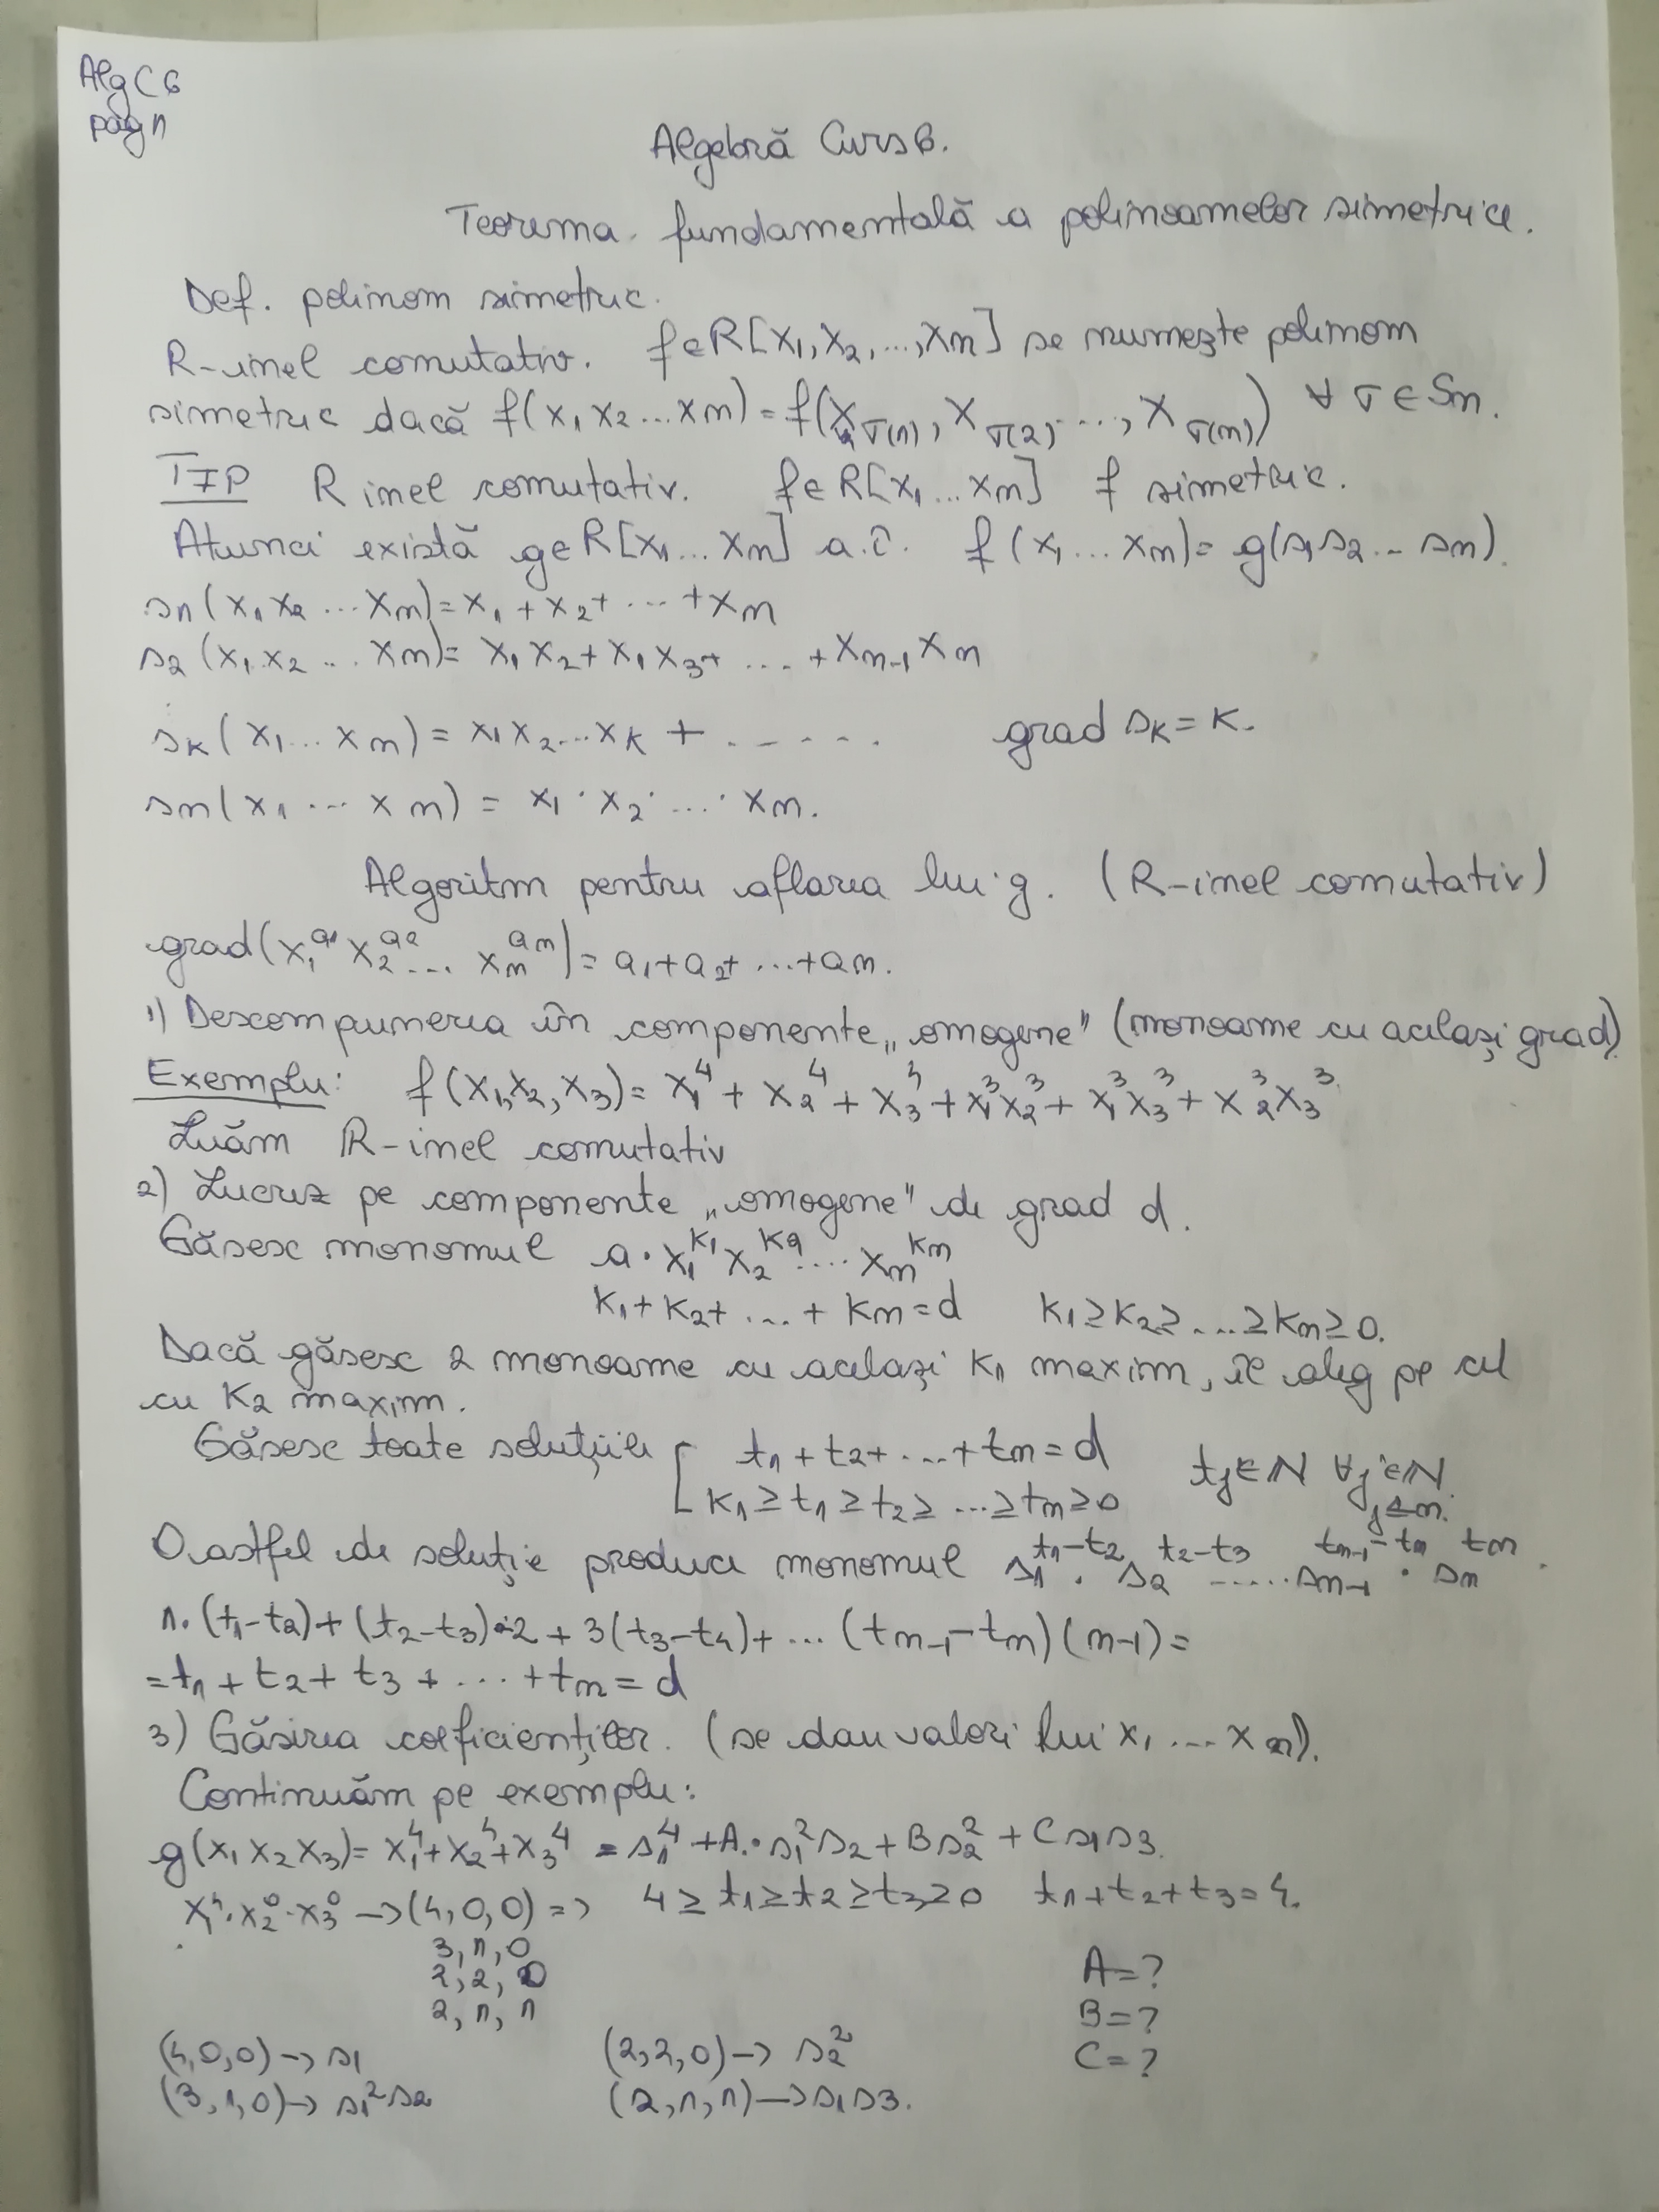 Alg C6
pag 1
Algebră Curs 6.
Teorema fundamentală a polinoamelor simetrice.
Def. polinom simetric.
R-inel comutativ. f∈R[x₁,x₂,...,xₙ] se numește polinom
simetric dacă f(x₁x₂...xₙ)=f(x_σ(1), x_σ(2), ..., x_σ(n)) ∀ σ∈Sₙ.
TFP R inel comutativ. f∈R[x₁...xₙ] f simetric.
Atunci există g∈R[x₁...xₙ] a.î. f(x₁...xₙ)=g(s₁s₂...sₙ).
s₁(x₁x₂...xₙ)=x₁+x₂+...+xₙ
s₂(x₁x₂...xₙ)=x₁x₂+x₁x₃+....+xₙ₋₁xₙ
sₖ(x₁...xₙ)=x₁x₂...xₖ+...... grad sₖ=k.
sₙ(x₁...xₙ)=x₁·x₂·...·xₙ.
Algoritm pentru aflarea lui g. (R-inel comutativ)
grad(x₁^a₁ x₂^a₂... xₙ^aₙ)=a₁+a₂+...+aₙ.
1) Descompunerea în componente „omogene" (monoame cu același grad)
Exemplu: f(x₁,x₂,x₃)=x₁⁴+x₂⁴+x₃⁴+x₁³x₂³+x₁³x₃³+x₂³x₃³
Luăm ℝ-inel comutativ
2) Lucrez pe componente „omogene" de grad d.
Găsesc monomul a·x₁^k₁ x₂^k₂....xₙ^kₙ
k₁+k₂+...+kₙ=d k₁≥k₂≥...≥kₙ≥0.
Dacă găsesc 2 monoame cu același k₁ maxim, îl aleg pe cel
cu k₂ maxim.
Găsesc toate soluțiile [ t₁+t₂+...+tₙ=d
k₁≥t₁≥t₂≥...≥tₙ≥0 tⱼ∈N ∀j∈N j≤n.
O astfel de soluție produce monomul s₁^(t₁-t₂)·s₂^(t₂-t₃).....sₙ₋₁^(tₙ₋₁-tₙ)·sₙ^tₙ.
1·(t₁-t₂)+(t₂-t₃)·2+3(t₃-t₄)+...(tₙ₋₁-tₙ)(n-1)=
=t₁+t₂+t₃+...+tₙ=d
3) Găsirea coeficienților. (se dau valori lui x₁...xₙ).
Continuăm pe exemplu:
g(x₁x₂x₃)=x₁⁴+x₂⁴+x₃⁴=s₁⁴+A·s₁²s₂+Bs₂²+Cs₁s₃.
x₁⁴·x₂⁰·x₃⁰→(4,0,0)=> 4≥t₁≥t₂≥t₃≥0 t₁+t₂+t₃=4.
3,1,0
2,2,0
2,1,1
A=?
B=?
C=?
(4,0,0)→s₁ (2,2,0)→s₂²
(3,1,0)→s₁²s₂ (2,1,1)→s₁s₃.